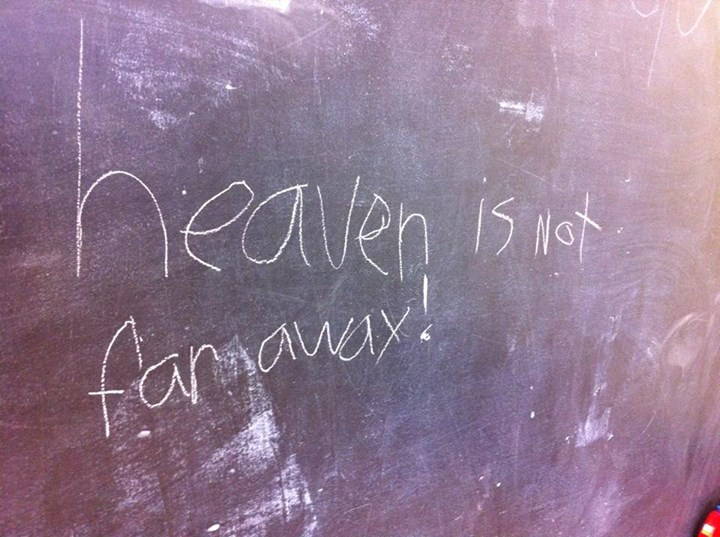 heaven is Not
far away!